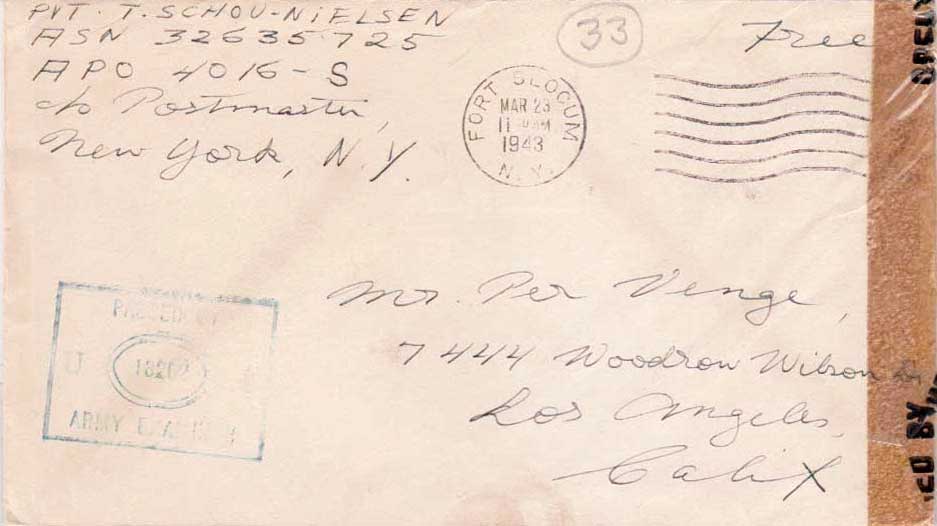 PVT. T. SCHOU-NIELSEN
ASN 32635725
APO 4016-S
c/o Postmaster,
New York, N.Y.
33
Free
FORT SLOCUM
MAR 23
11 AM
1943
N.Y.
Mr. Per Venge,
7444 Woodrow Wilson Dr
Los Angeles,
Calif
PASSED BY
ARMY EXAMINER
ED BY